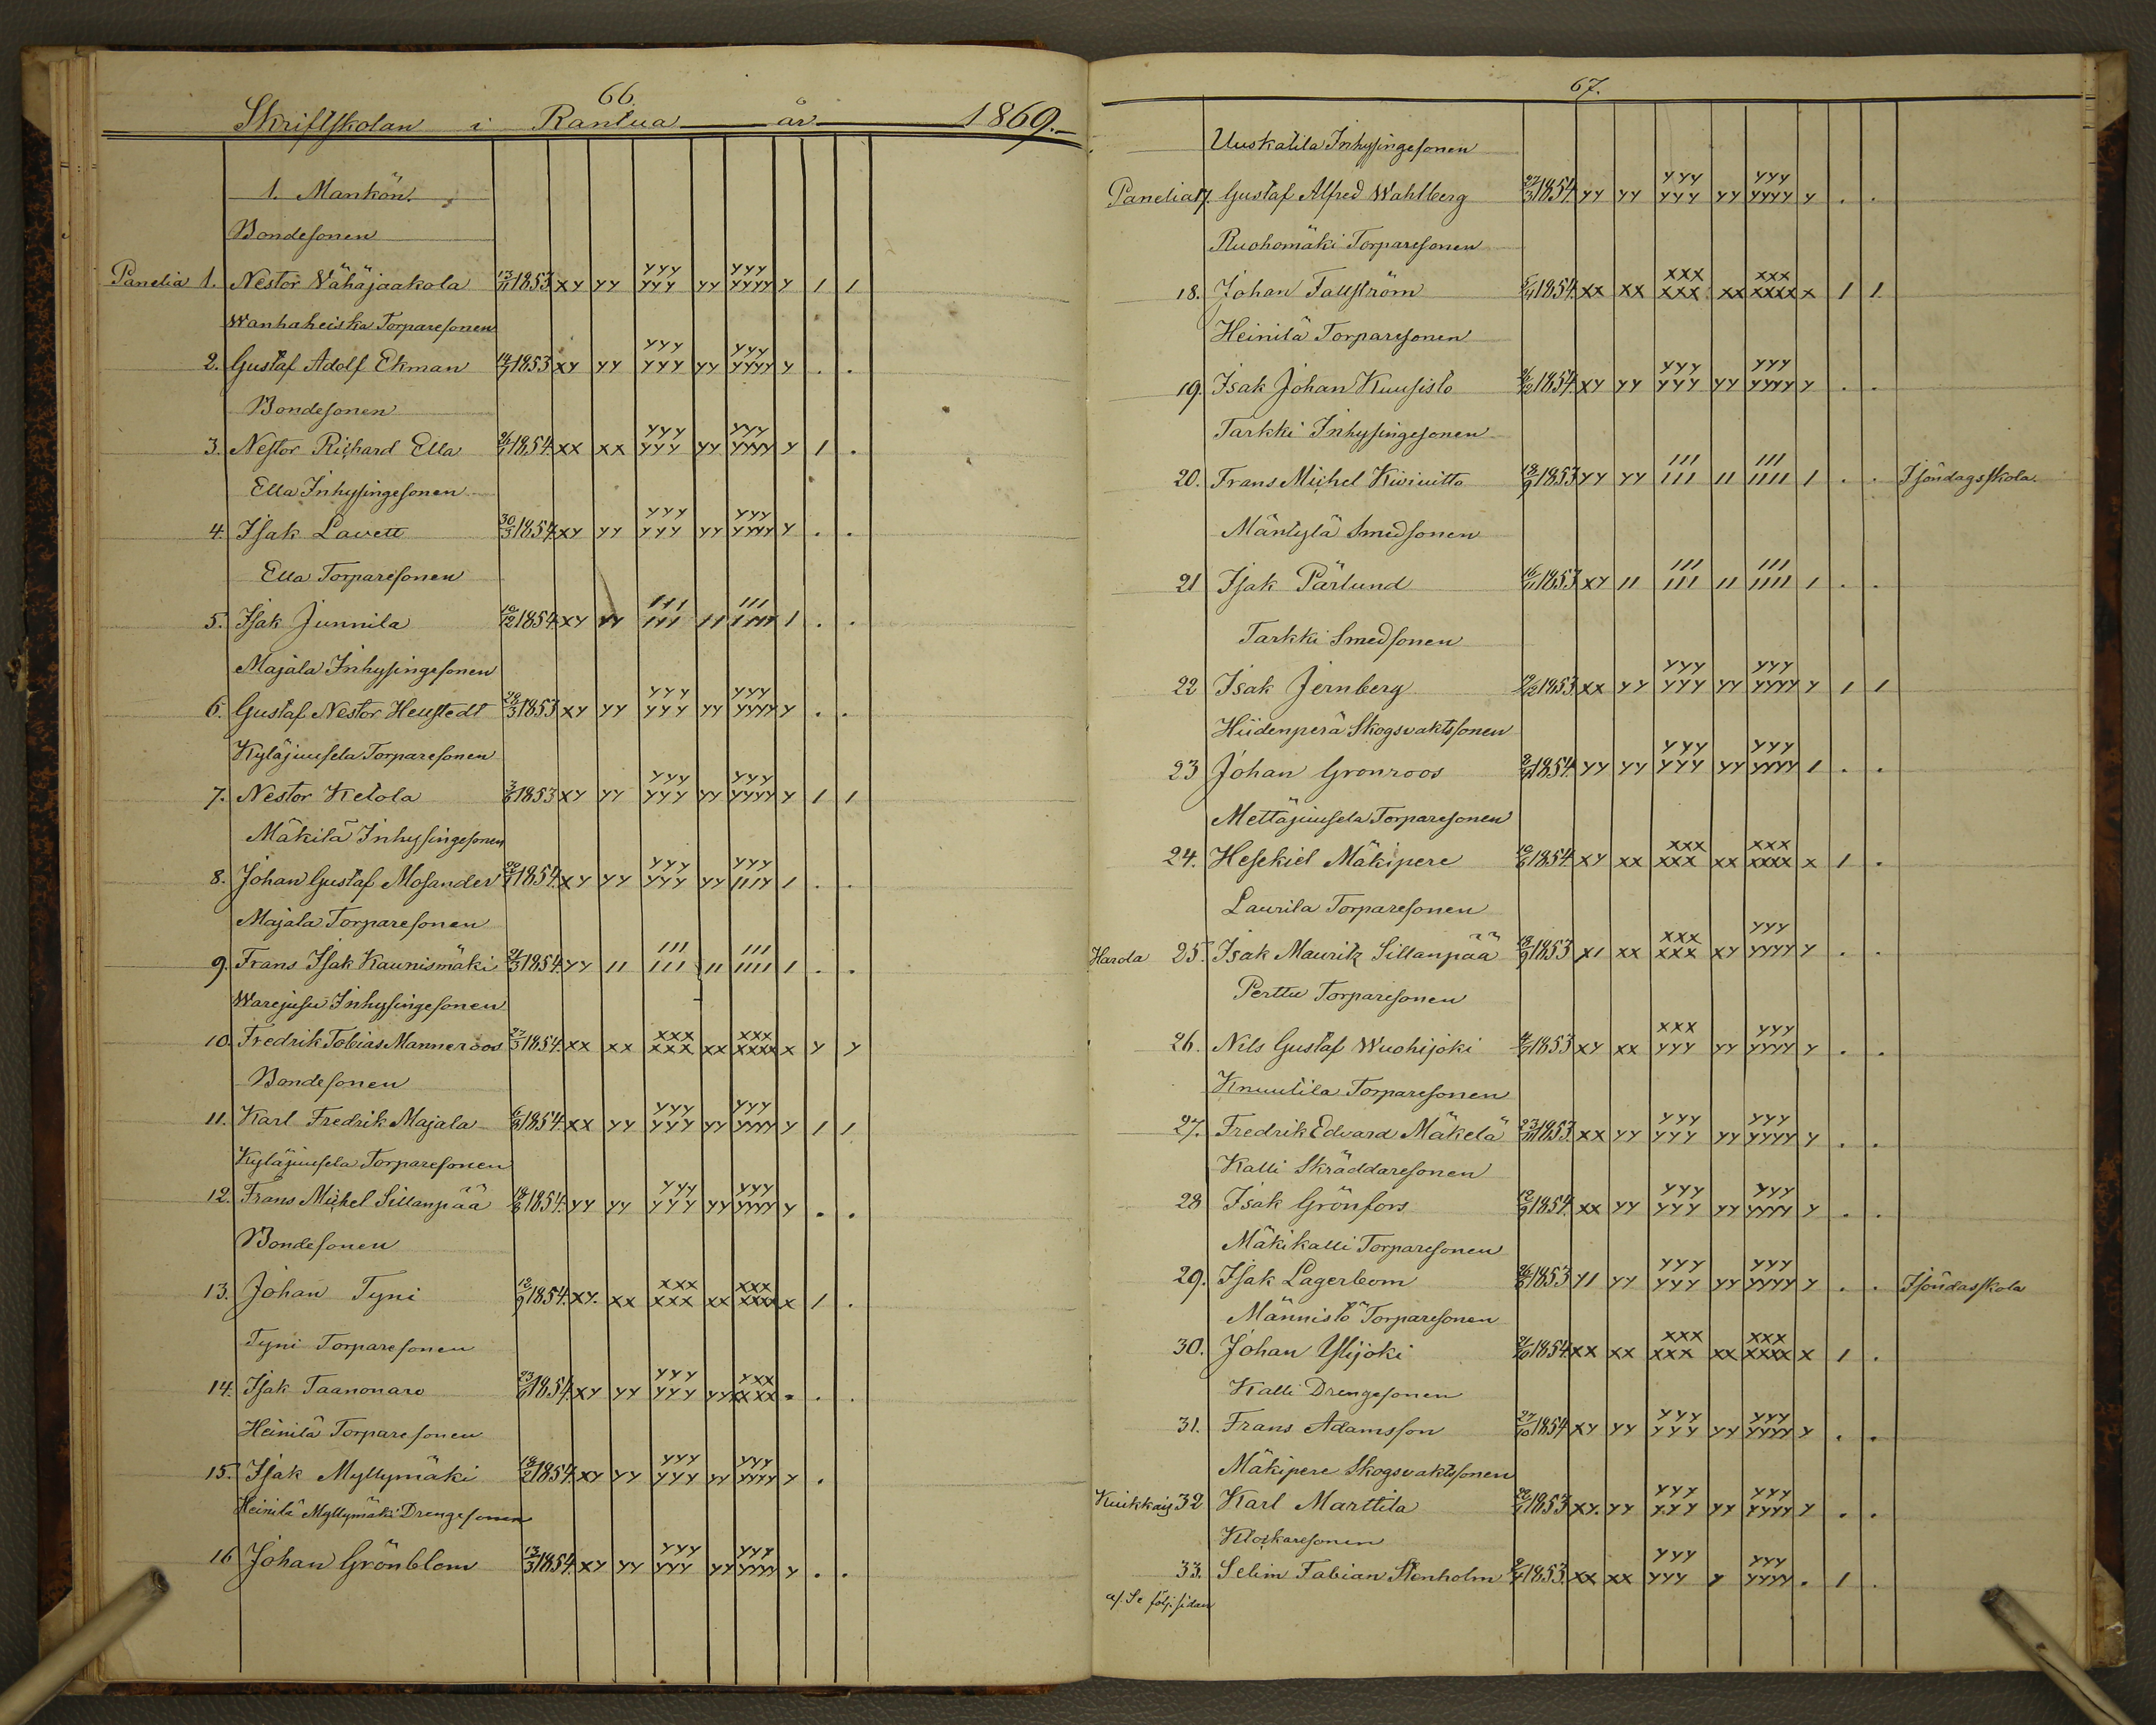 66.
Skriftskolan i Rantua år 1869.
1. Mankön.
Bondesonen
Panelia 1. Nestor Vähäjaakola 13/11 1853 xy yy yyy yyy yy yyy yyyy y 1 1
Wanhaheiska Torparesonen
2. Gustaf Adolf Ekman 1853 xy yy yyy yyy yy yyy yyyy y . .
Bondesonen
3. Nestor Richard Ella 1854 xx xx yyy yyy yy yyy yyyy y 1 .
Ella Inhysingesonen
4. Isak Lavett 30/3 1854 xy yy yyy yyy yy yyy yyyy y . .
Ella Torparesonen
5. Isak Junnila 1854 xy yy 111 111 11 111 1111 1 . .
Majala Inhysingesonen
6. Gustaf Nestor 1853 xy yy yyy yyy yy yyy yyyy y . .
Kyläjuusela Torparesonen
7. Nestor Ketola 1853 xy yy yyy yyy yy yyy yyyy y 1 1
Mäkilä Inhysingesonen
8. Johan Gustaf Mosander 1854 xy yy yyy yyy yy yyy 111y 1 . .
Majala Torparesonen
9. Frans Isak Kaunismäki 1854 yy 11 111 111 11 111 1111 1 . .
Inhysingesonen
10. Fredrik Tobias Manneroos 27/3 1854 xx xx xxx xxx xx xxx xxxx x y y
Bondesonen
11. Karl Fredrik Majala 1854 xx yy yyy yyy yy yyy yyyy y 1 1
Kyläjuusela Torparesonen
12. Frans Michel Sillanpää 1854 yy yy yyy yyy yy yyy yyyy y . .
Bondesonen
13. Johan Tyni 12/9 1854 xy. xx xxx xxx xx xxx xxxx x 1 .
Tyni Torparesonen
14. Isak Taanonaro 1854 xy yy yyy yyy yy yxx xxxx . . .
Heinilä Torparesonen
15. Isak Myllymäki 1854 xy yy yyy yyy yy yyy yyyy y .
Heinilä Myllymäki Drengesonen
16 Johan Grönblom 13/3 1854 xy yy yyy yyy yy yyy yyyy y . .
67.
Uuskalila Inhysingesonen
Panelia 17. Gustaf Alfred Wahlberg 27/3 1854 yy yy yyy yyy yy yyy yyyy y . .
Ruohomäki Torparesonen
18. Johan Fallström 1854 xx xx xxx xxx xx xxx xxxx x 1 1
Heinilä Torparesonen
19. Isak Johan Kuusisto 1854 xy yy yyy yyy yy yyy yyyy y . .
Tarkki Inhysingesonen
20. Frans Michel 18/9 1853 yy yy 111 111 11 111 1111 1 . . I söndagsskola.
Mäntylä Smedsonen
21 Isak Pärlund 16/11 1853 xy 11 111 111 11 111 1111 1 . .
Tarkki Smedsonen
22 Isak Jernberg 1853 xx yy yyy yyy yy yyy yyyy y 1 1
Hiidenperä Skogsvaktssonen
23 Johan Gronroos 1854 yy yy yyy yyy yy yyy yyyy 1 . .
Mettäjuusela Torparesonen
24. Hesekiel Mäkipere 1854 xy xx xxx xxx xx xxx xxxx x 1 .
Laurila Torparesonen
Harola 25. Isak Mauritz Sillanpää 18/9 1853 x1 xx xxx xxx xy yyy yyyy y . .
Perttu Torparesonen
26. Nils Gustaf Wuohijoki 1853 xy xx xxx yyy yy yyy yyyy y . .
Knuutila Torparesonen
27. Fredrik Edvard Mäkelä 1853 xx yy yyy yyy yy yyy yyyy y . .
Kalli Skräddaresonen
28 Isak Grönfors 12/9 1854. xx yy yyy yyy yy yyy yyyy y . .
Mäkikalli Torparesonen
29. Isak Lagerbom 1853 y1 yy yyy yyy yy yyy yyyy y . . I söndasskola
Männistö Torparesonen
30. Johan Ylijoki 1854 xx xx xxx xxx xx xxx xxxx x 1 .
Kalli Drengesonen
31. Frans Adamsson 27/10 1854 xy yy yyy yyy yy yyy yyyy y . .
Mäkipere Skogsvaktssonen
32 Karl Marttila 1853 xy. yy yyy yyy yy yyy yyyy y . .
Klockaresonen
33. Selim Fabian Stenholm 1853. xx xx yyy yyy y yyy yyyy . 1 .
a/. Se följ. sidan